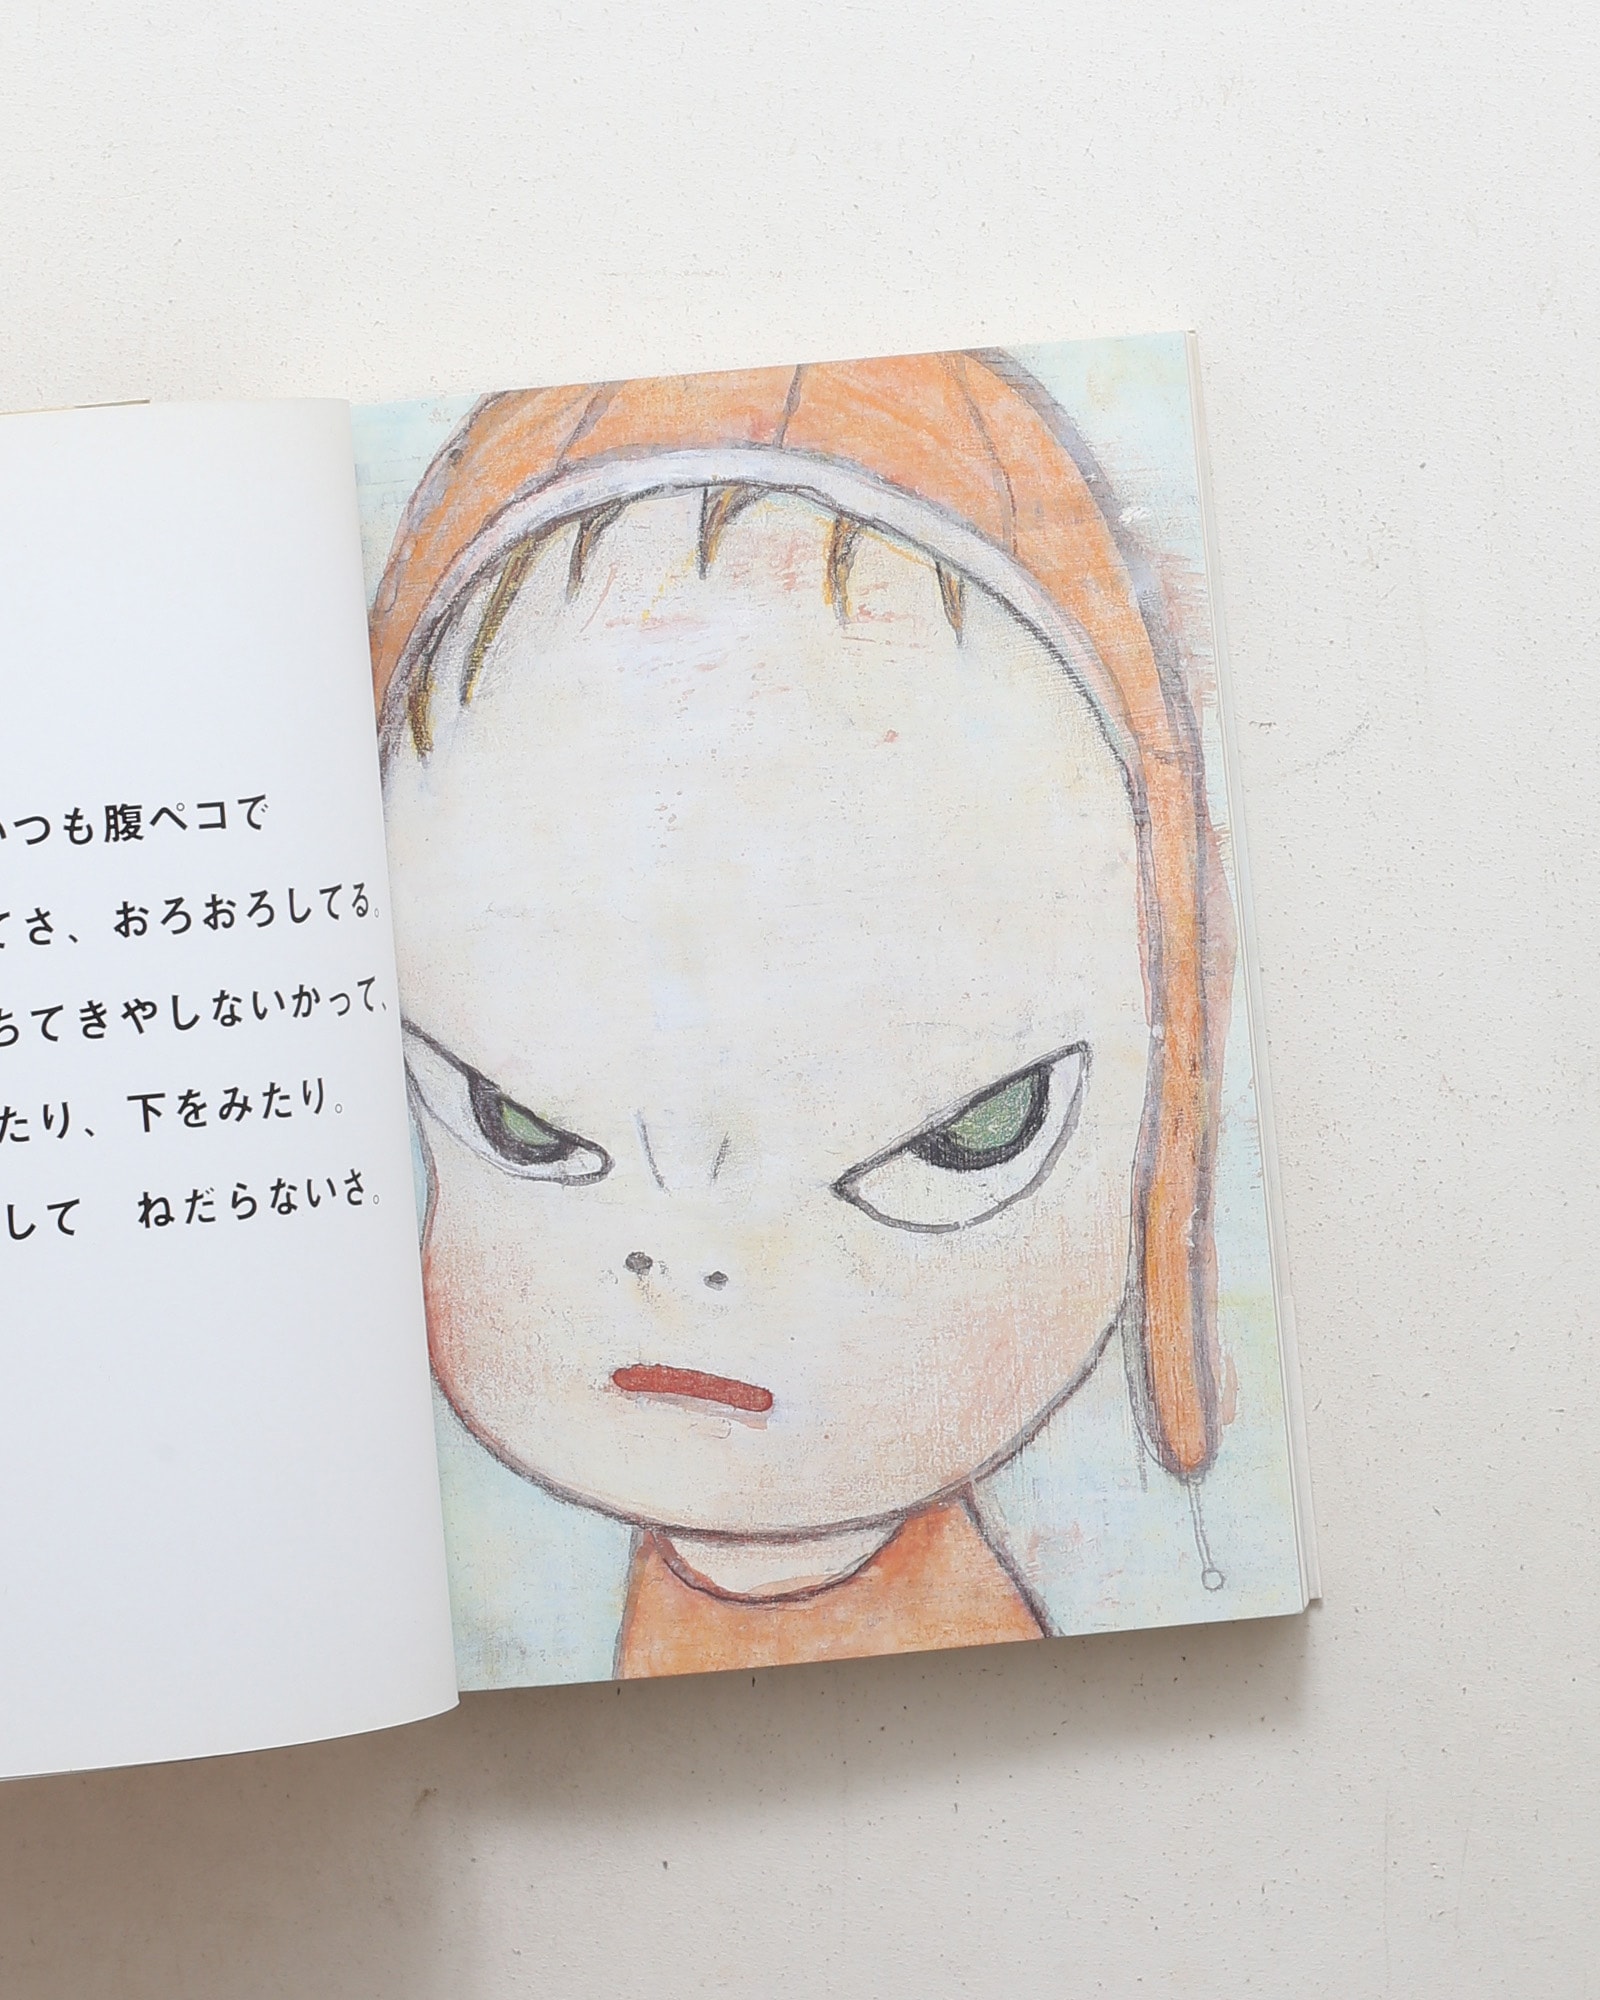 いつも腹ペコで
てさ、おろおろしてる。
ちてきやしないかって、
たり、下をみたり。
して　ねだらないさ。